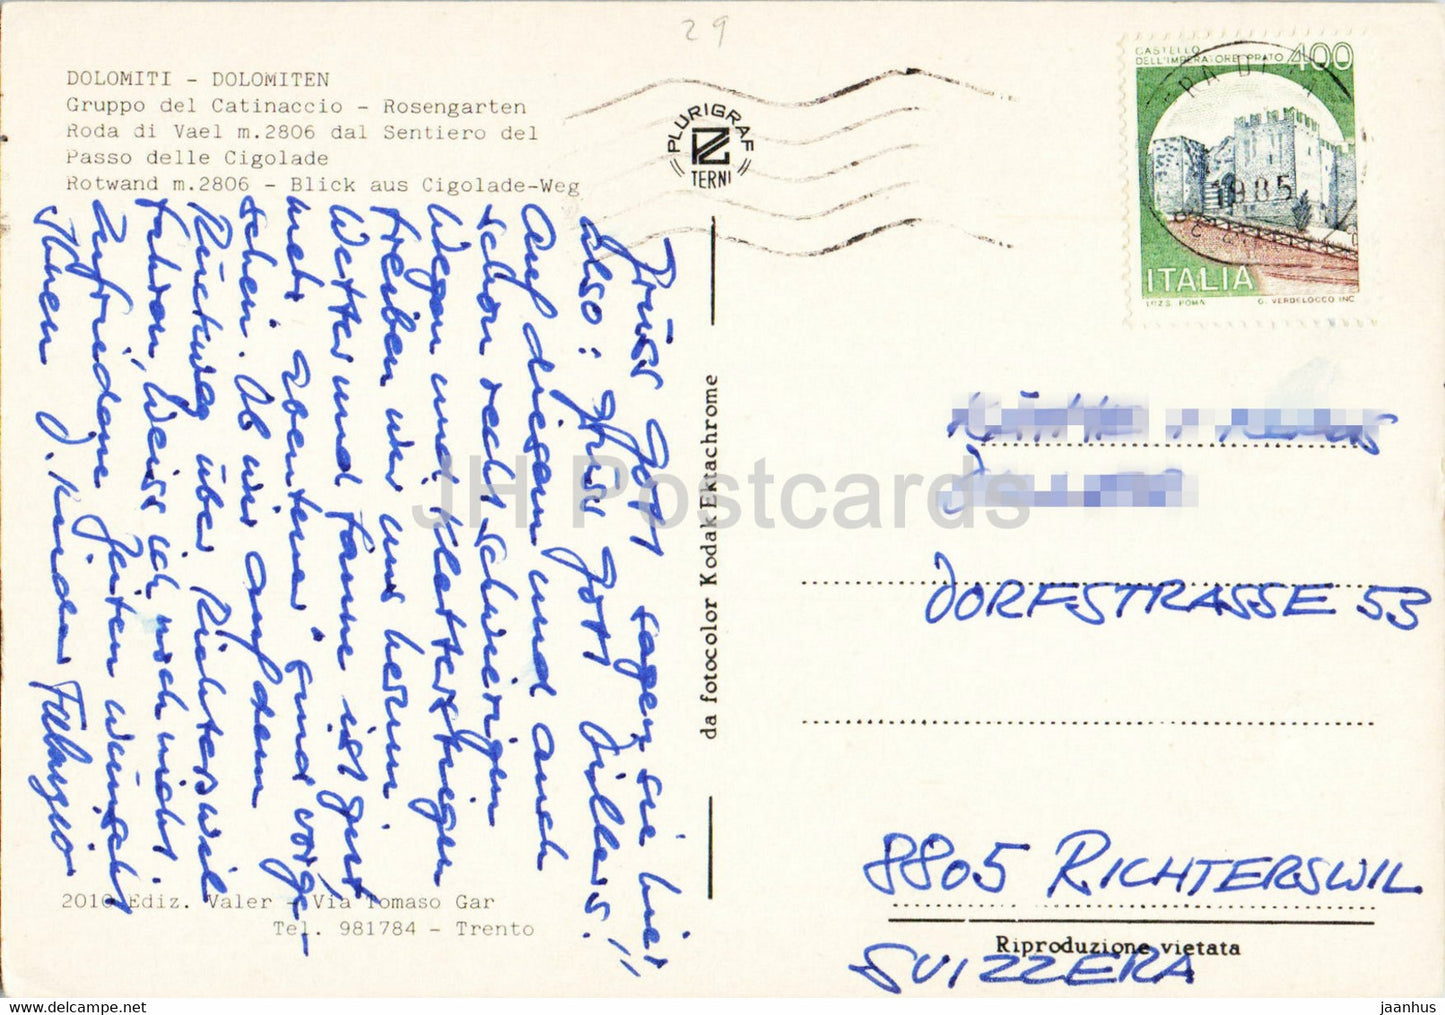 29
DOLOMITI - DOLOMITEN
Gruppo del Catinaccio - Rosengarten
Roda di Vael m.2806 dal Sentiero del
Passo delle Cigolade
Rotwand m.2806 - Blick aus Cigolade-Weg
PLURIGRAF
TERNI
CASTELLO
DELL'IMPERATORE PRATO 400
1985
ITALIA
I.P.Z.S. ROMA G. VERDELOCCO INC.
Grüss Gott sagen sie hier
also: Grüss Gott !!
Auf diesem und auch
schon recht schwierigen
Wegen und Klettersteigen
treiben wir uns herum
Wetter und Laune ist gut
mehr Abenteuer sind vorge-
sehen. Ob wir auf dem
Rückweg über Richterswil
fahren, weiss ich noch nicht.
Zufriedene Zeiten wünscht
Ihnen
da fotocolor Kodak Ektachrome
DORFSTRASSE 53
8805 RICHTERSWIL
SVIZZERA
Riproduzione vietata
2010 Ediz. Valer - Via Tomaso Gar
Tel. 981784 - Trento
JH Postcards
hipstamp.com/store/jaanhus